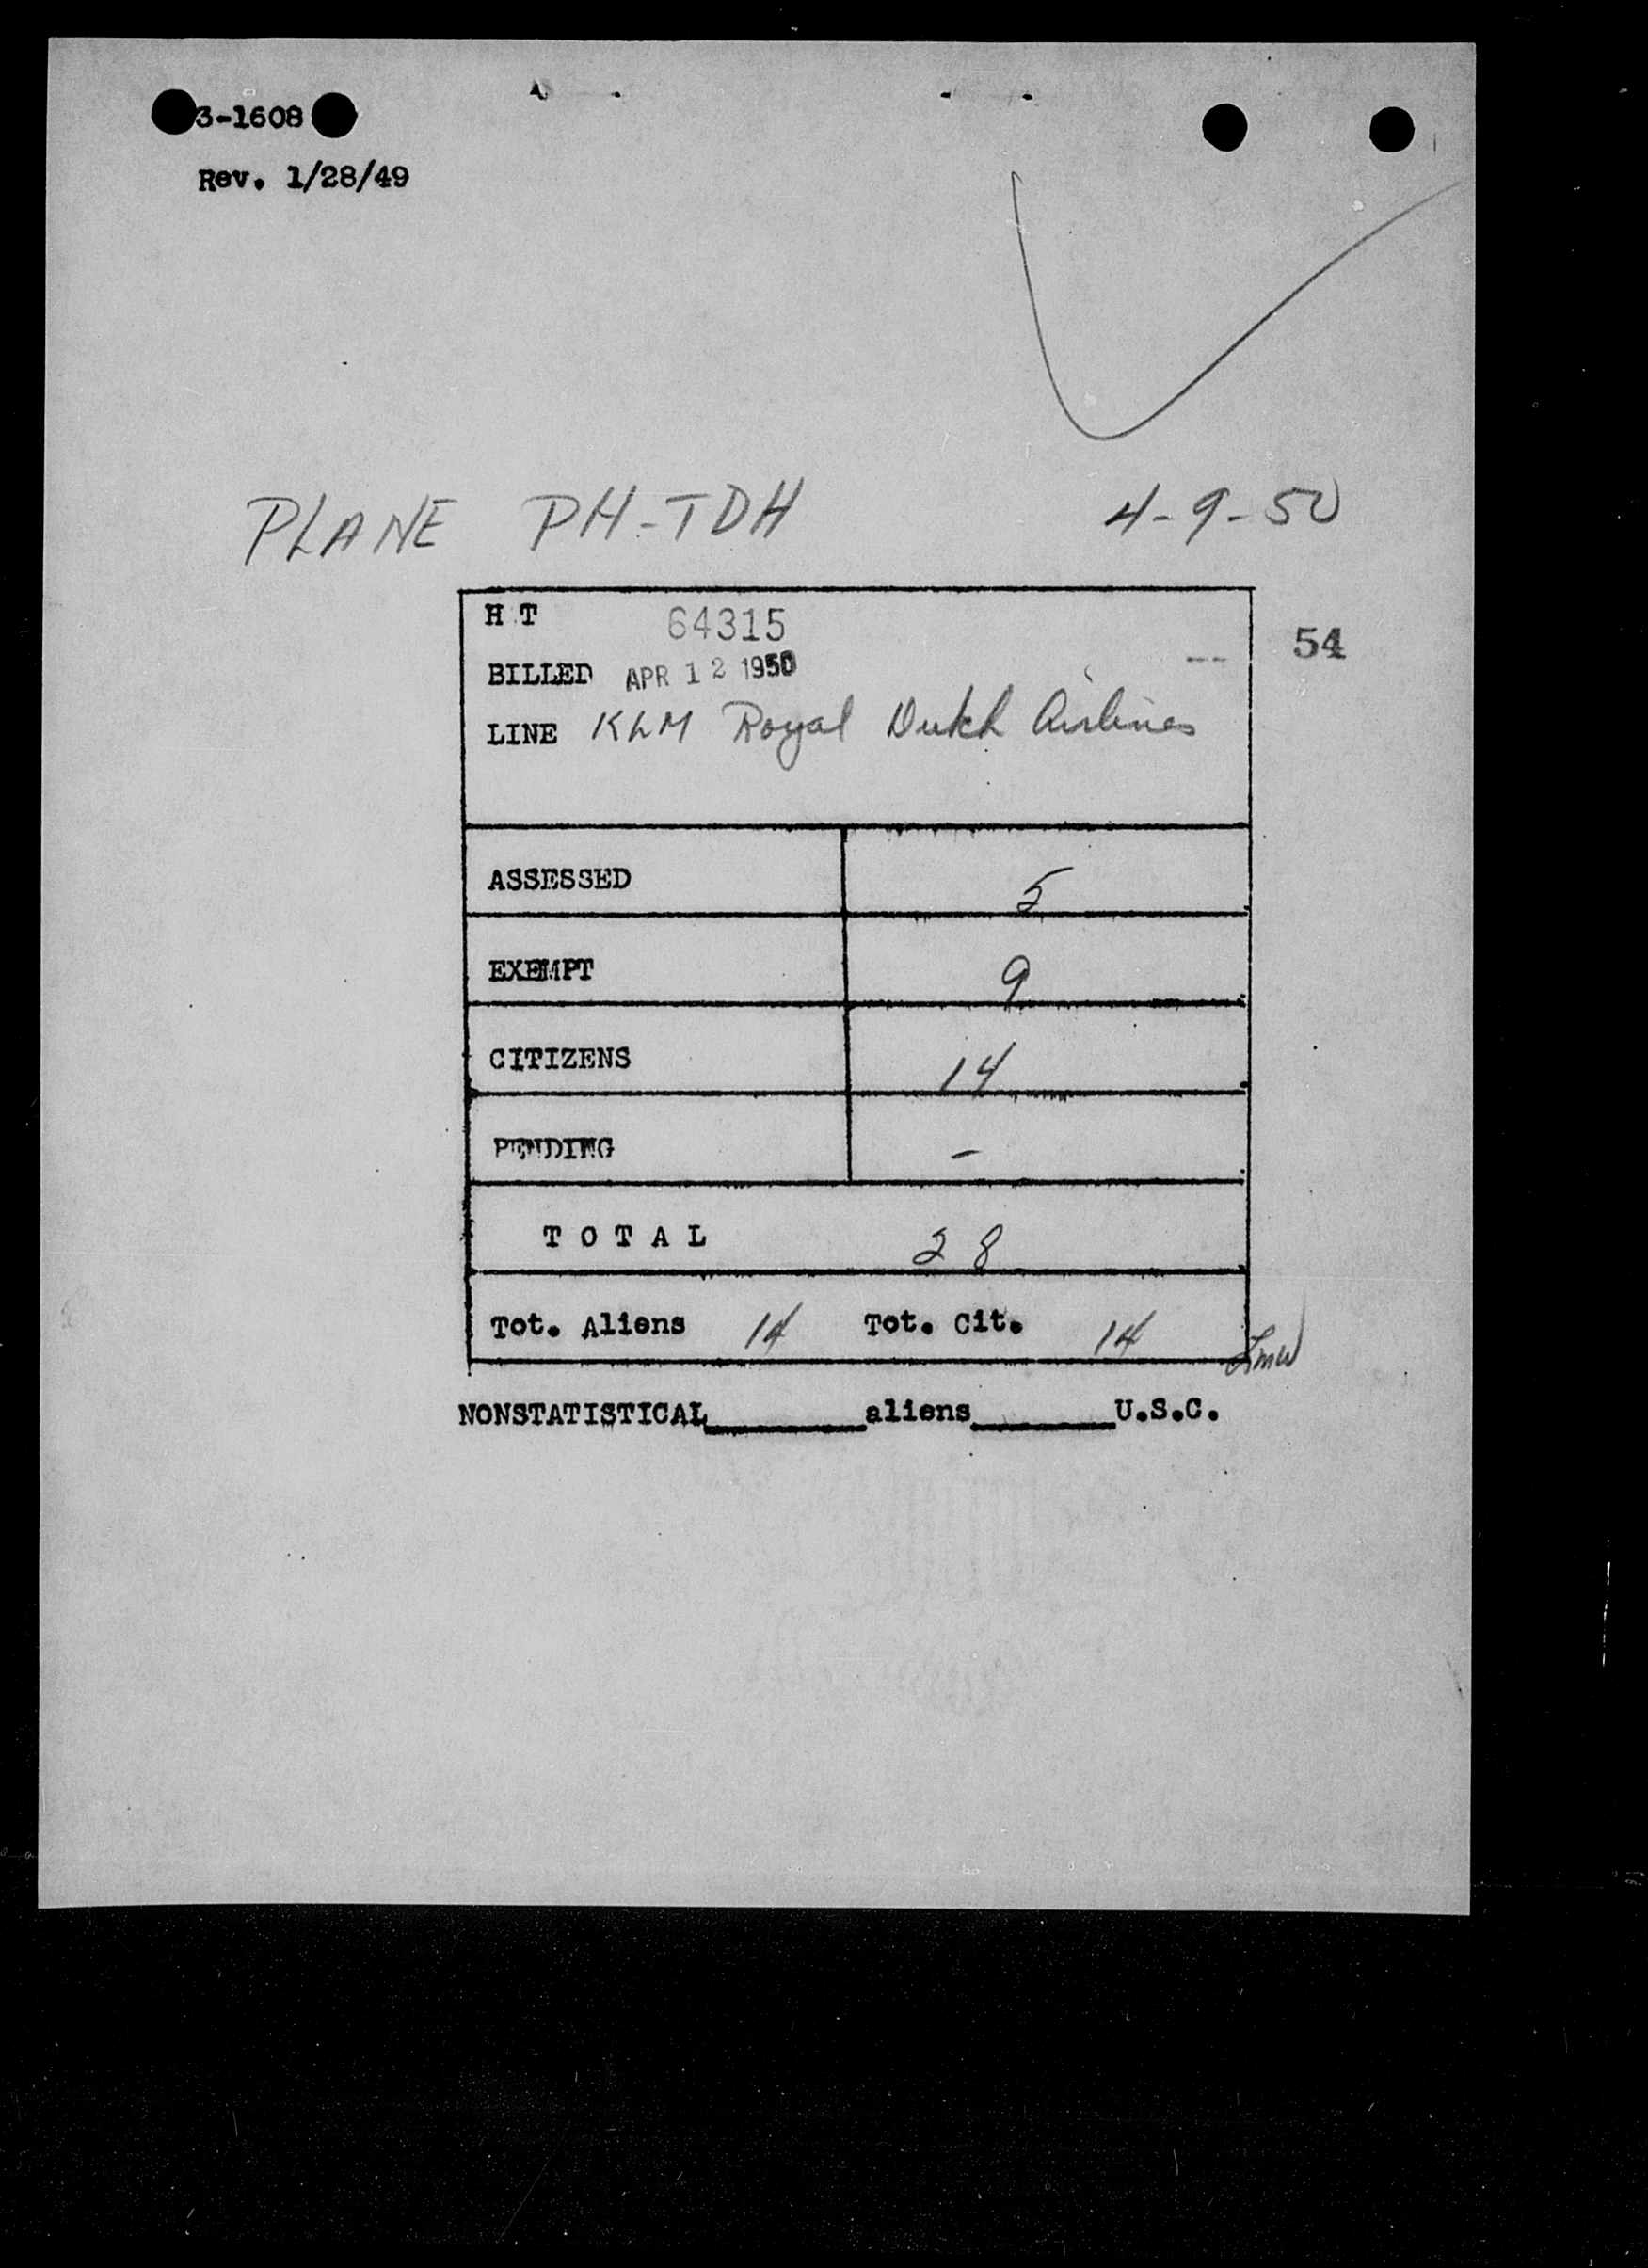 3-1608
Rev. 1/28/49
PLANE PH-TDH 4-9-50
H T 64315
54
BILLED APR 12 1950
LINE KLM Royal Dutch Airlines
ASSESSED 5
EXEMPT 9
CITIZENS 14
PENDING -
TOTAL 28
Tot. Aliens 14 Tot. Cit. 14
NONSTATISTICAL______aliens______U.S.C.